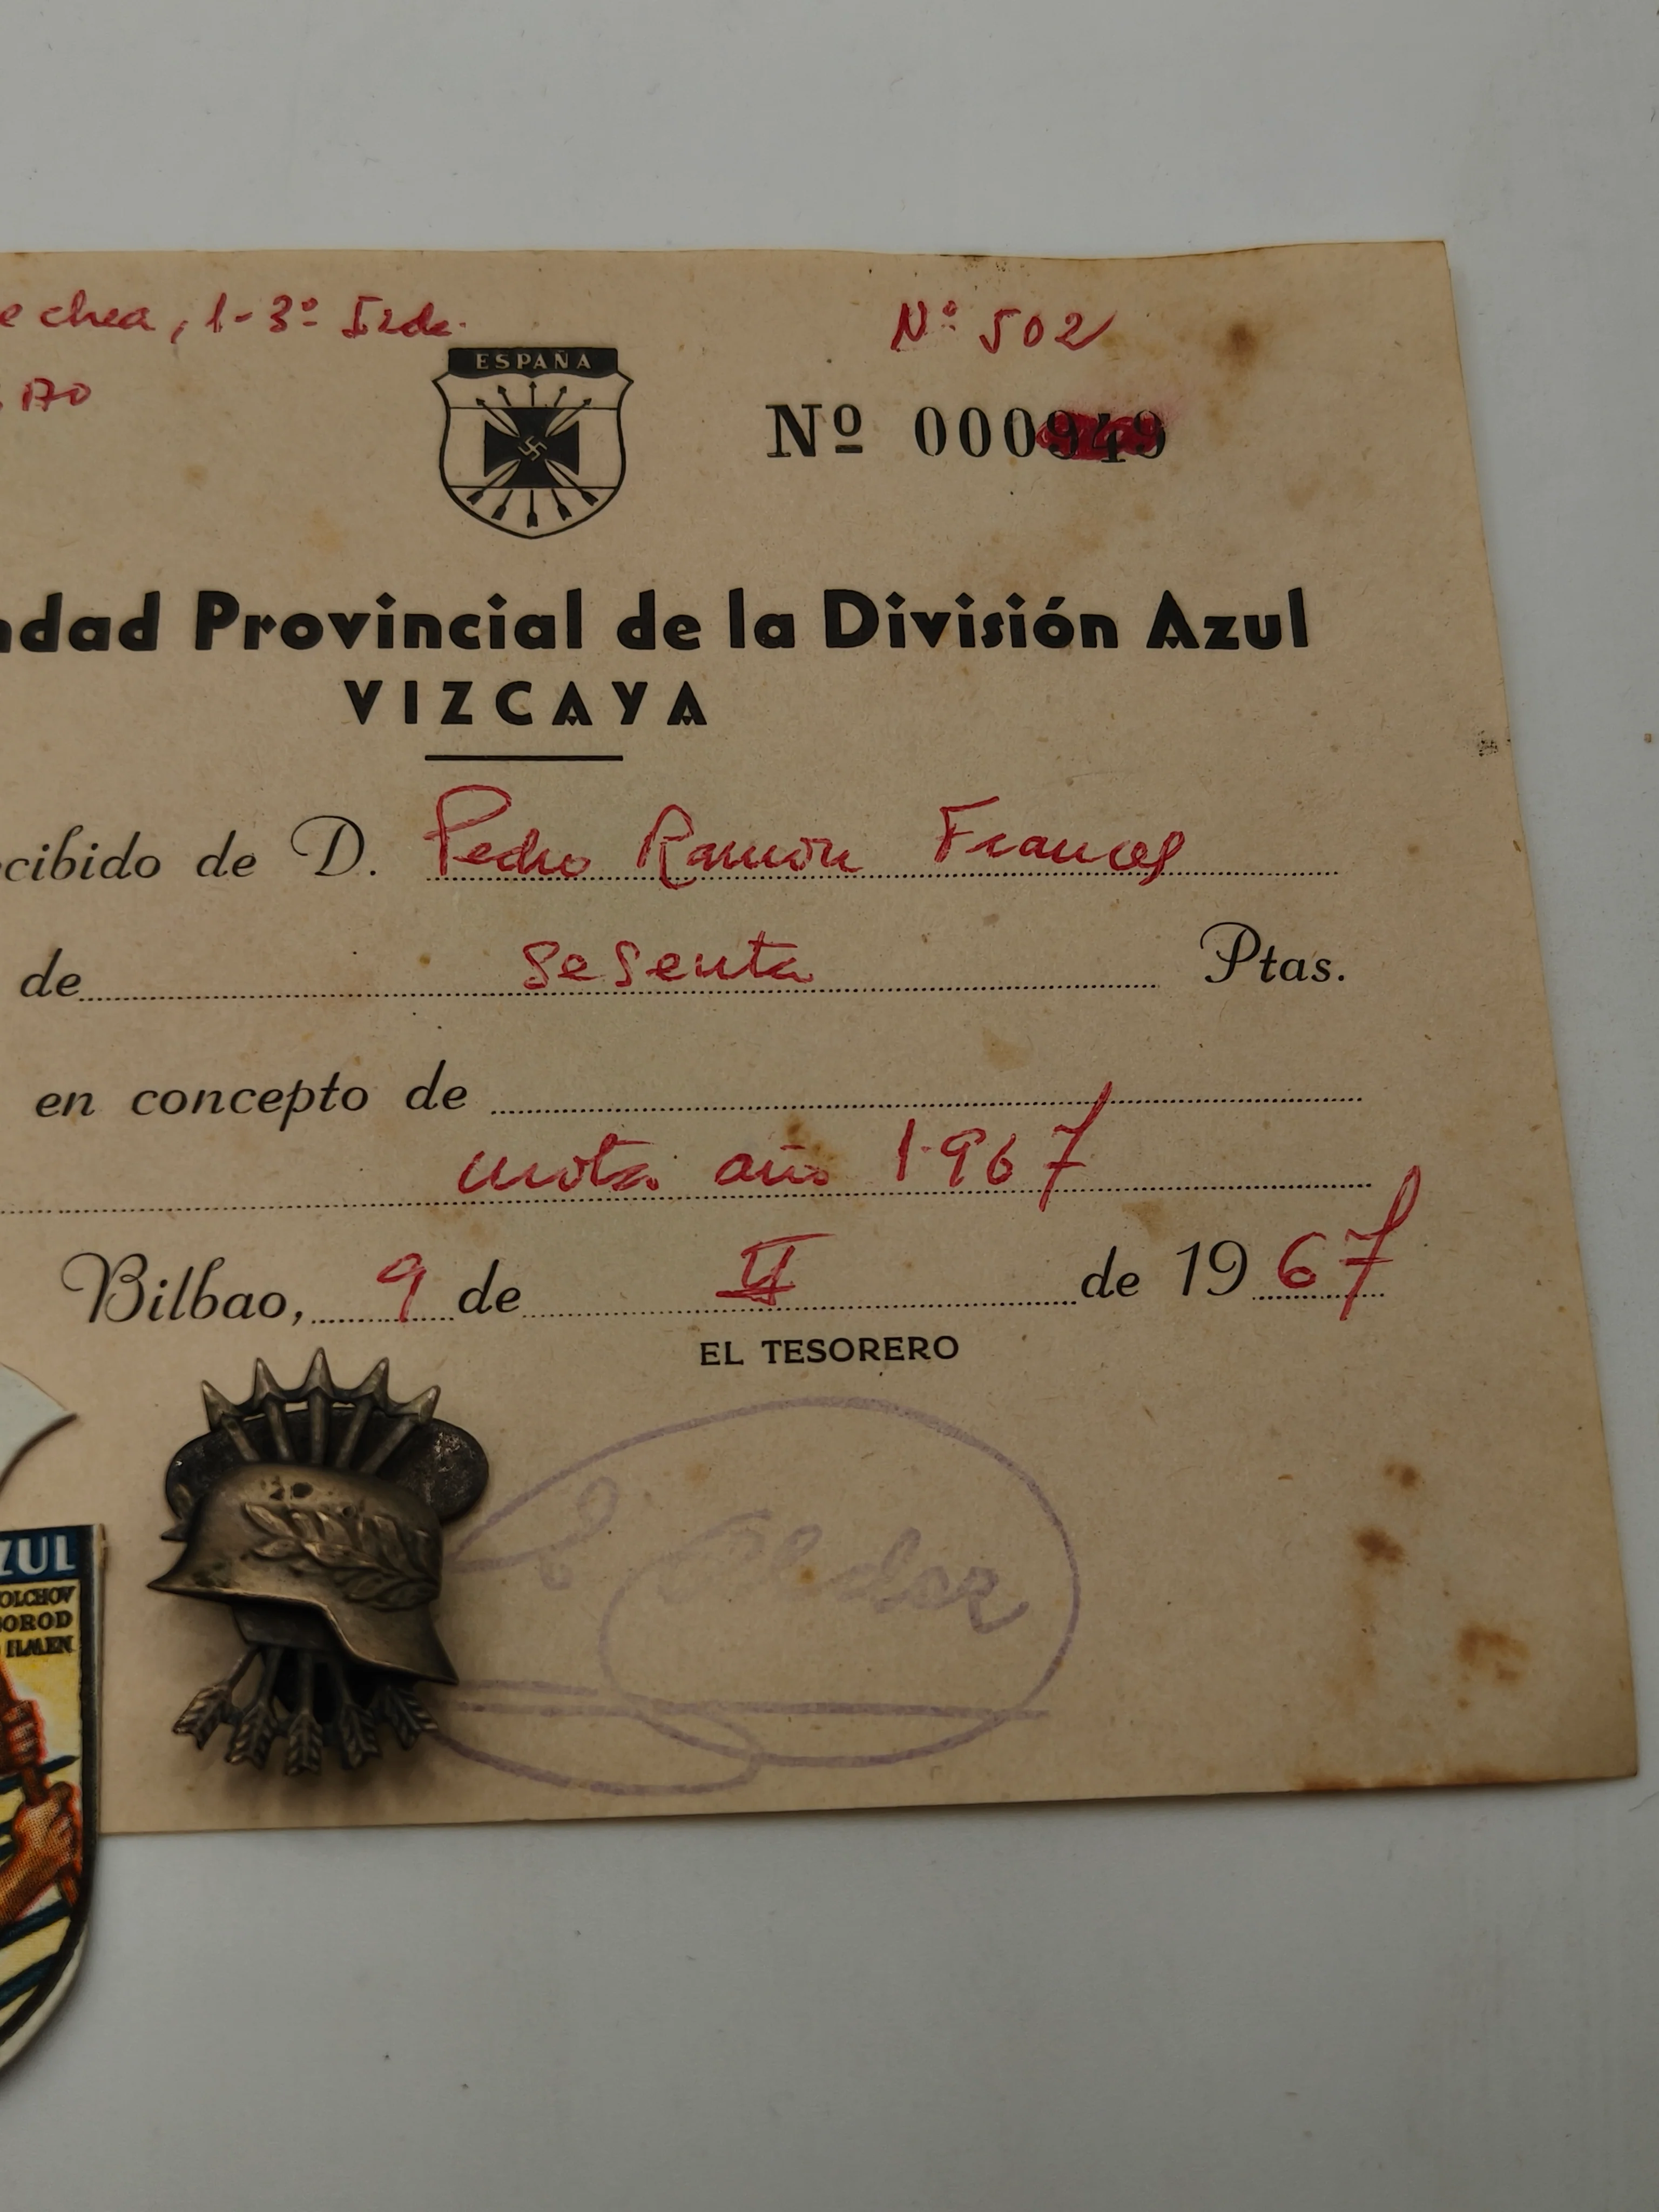 echea, 1-3º Izda.
Nº 502
ESPAÑA
Nº 000949
ndad Provincial de la División Azul
VIZCAYA
ecibido de D. Pedro Ramón Frances
de sesenta Ptas.
en concepto de
cuota año 1.967
Bilbao, 9 de II de 1967
EL TESORERO
ZUL
OLCHOV
OROD
ILMEN